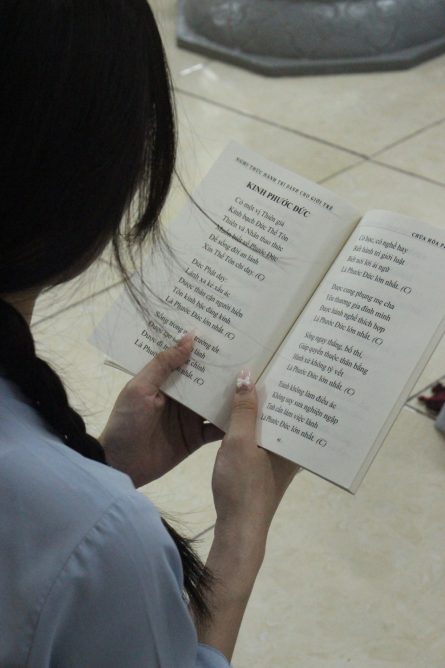 NGHI THỨC HÀNH TRÌ DÀNH CHO GIỚI TRẺ
KINH PHƯỚC ĐỨC
Có một vị Thiên giả
Kính bạch Đức Thế Tôn
Thiên và Nhân thao thức
Muốn biết về Phước Đức
Để sống đời an lành
Xin Thế Tôn chỉ dạy. (C)
Đức Phật dạy:
Lánh xa kẻ xấu ác
Được thân cận người hiền
Tôn kính bậc đáng kính
Là Phước Đức lớn nhất. (C)
Sống trong môi trường tốt
Được
Được đi
Là Phước nhất. (C)
CHÙA HÒA
Có học, có nghề hay
Biết hành trì giới luật
Biết nói lời ái ngữ
Là Phước Đức lớn nhất. (C)
Được cung phụng mẹ cha
Yêu thương gia đình mình
Được hành nghề thích hợp
Là Phước Đức lớn nhất. (C)
Sống ngay thẳng, bố thí,
Giúp quyến thuộc thân bằng
Hành xử không tỳ vết
Là Phước Đức lớn nhất. (C)
Tránh không làm điều ác
Không say sưa nghiện ngập
Tinh cần làm việc lành
Là Phước Đức lớn nhất. (C)